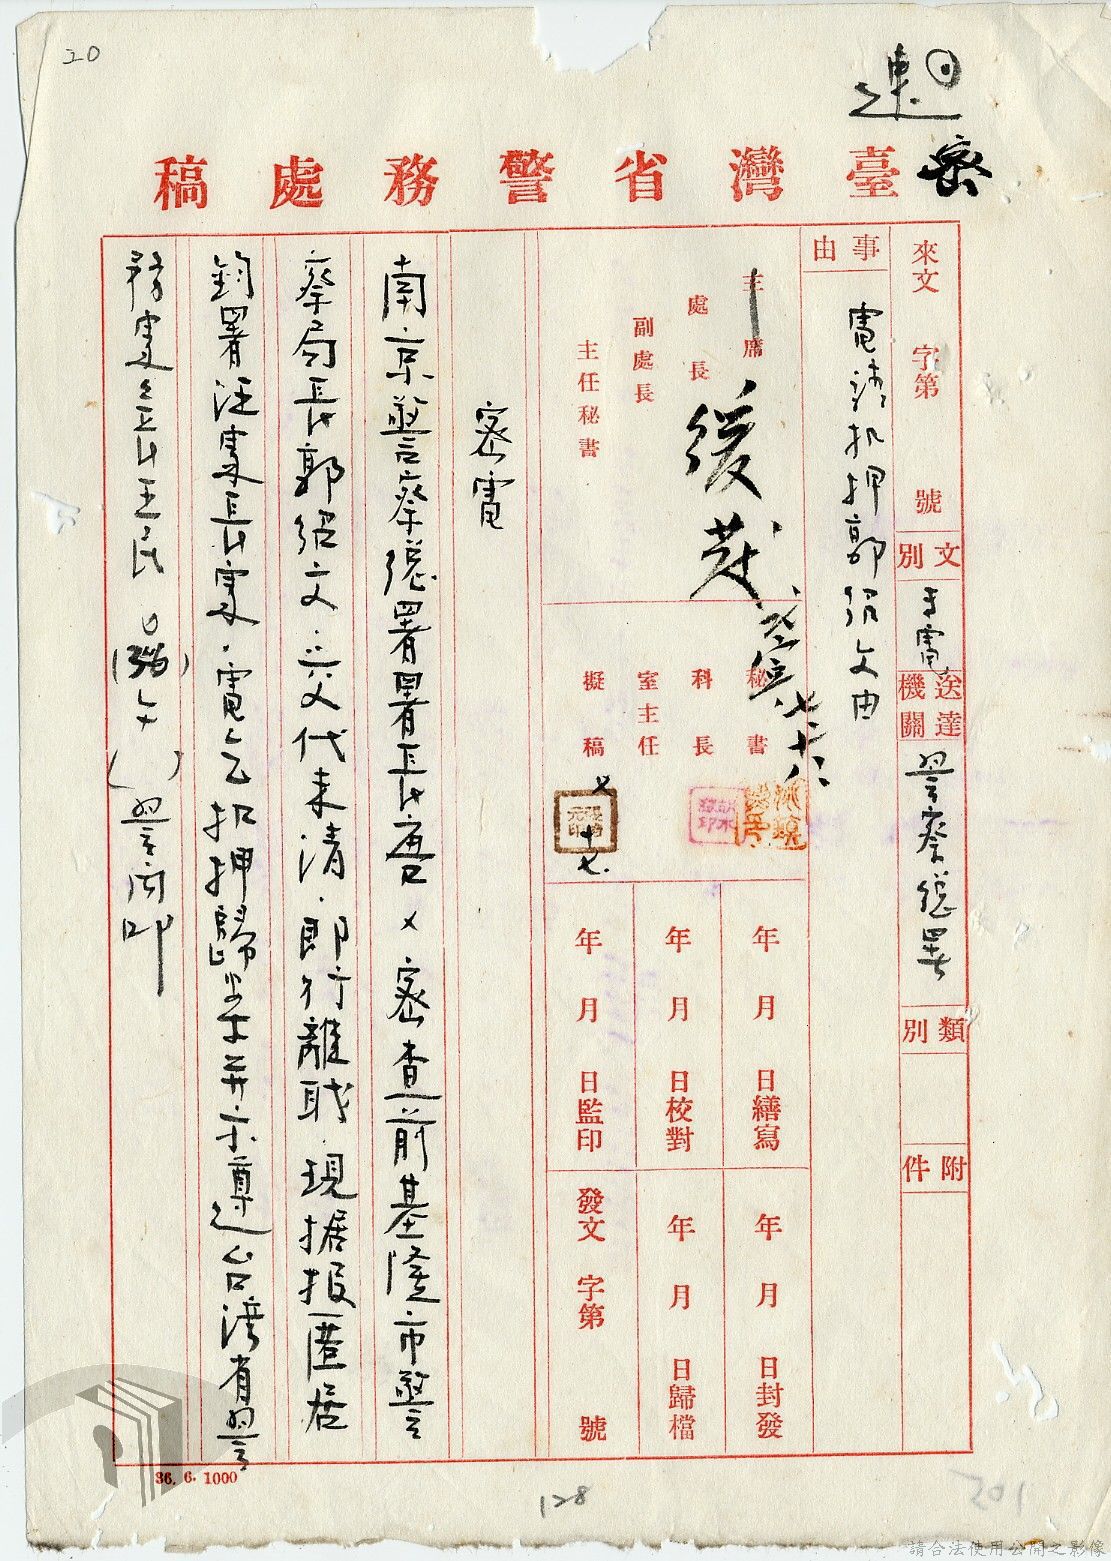 20
速
密
臺灣省警務處稿
來文 字第 號
文別
送達機關
警察總署
類別
附件
事由
電請扣押郭紹文由
主席
處長
副處長
主任秘書
緩發
秘書
科長
室主任
擬稿
七 十七
年 月 日繕寫
年 月 日校對
年 月 日監印
年 月 日封發
年 月 日歸檔
發文 字第 號
密電
南京警察總署署長唐 密查前基隆市警
察局長郭紹文 交代未清 即行離職 現據报匿居
鈞署汪 長 電乞扣押歸案并示遵 台湾省警
務處 長王民 警 印
36. 6. 1000
128
201
請合法使用公開之影像